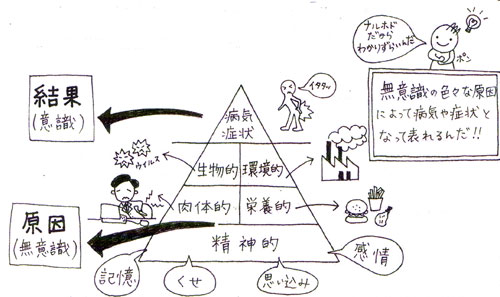 ナルホド
だから
わかりずらいんだ
ポン
結果
(意識)
病気
症状
イタタッ
無意識の色々な原因
によって病気や症状と
なって表れるんだ!!
ウイルス
生物的
環境的
肉体的
栄養的
原因
(無意識)
精神的
記憶
くせ
思い込み
感情